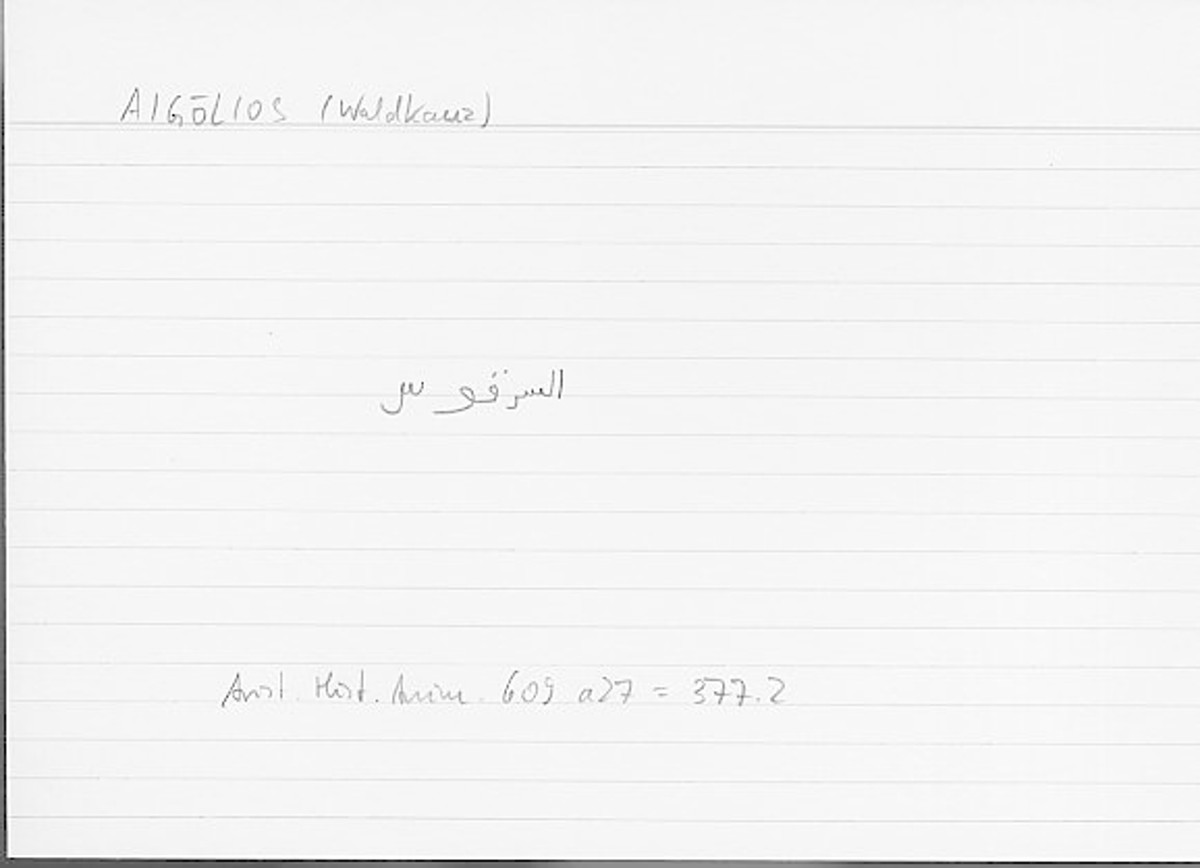 AIGŌLIOS (Waldkauz)
السرقوس
Arist. Hist. Anim. 609 a27 = 377.2